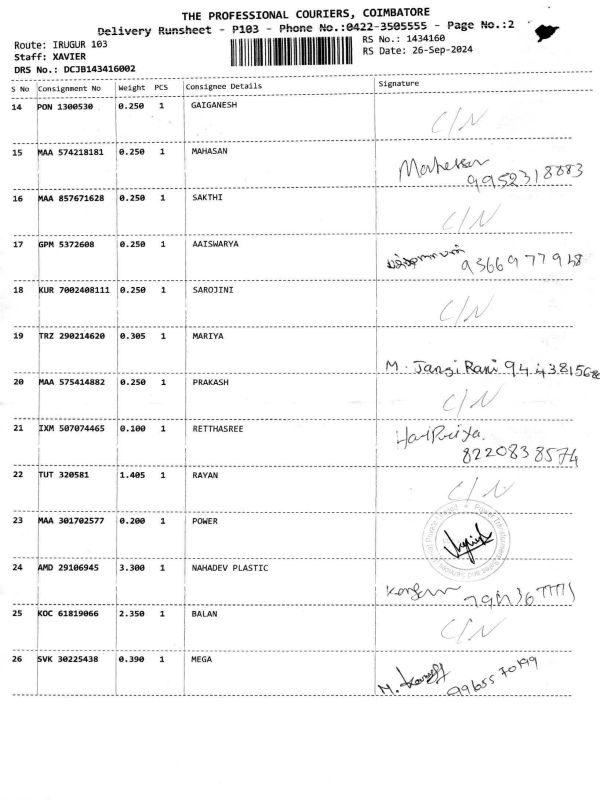 THE PROFESSIONAL COURIERS, COIMBATORE
Delivery Runsheet - P103 - Phone No.:0422-3505555 - Page No.:2
Route: IRUGUR 103
RS No.: 1434160
Staff: XAVIER
RS Date: 26-Sep-2024
DRS No.: DCJB143416002
S No Consignment No Weight PCS Consignee Details Signature
14 PON 1300530 0.250 1 GAIGANESH
C/N
15 MAA 574218181 0.250 1 MAHASAN
9952318883
16 MAA 857671628 0.250 1 SAKTHI
C/N
17 GPM 5372608 0.250 1 AAISWARYA
18 KUR 7002408111 0.250 1 SAROJINI
C/N
19 TRZ 290214620 0.305 1 MARIYA
M. Jansi Rani
20 MAA 575414882 0.250 1 PRAKASH
C/N
21 IXM 507074465 0.100 1 RETTHASREE
HariPriya.
8220838574
22 TUT 320581 1.405 1 RAYAN
C/N
23 MAA 301702577 0.200 1 POWER
24 AMD 29106945 3.300 1 NAHADEV PLASTIC
25 KOC 61819066 2.350 1 BALAN
C/N
26 SVK 30225438 0.390 1 MEGA